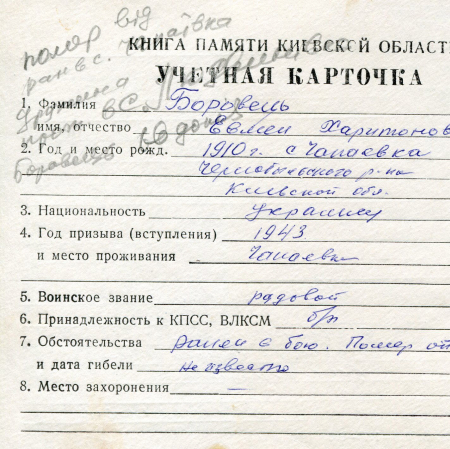 помер від
ран в с. Чапаївка
Дружина
в с.
Боровець
КНИГА ПАМЯТИ КИЕВСКОЙ ОБЛАСТ
УЧЕТНАЯ КАРТОЧКА
1. Фамилия Боровець
имя, отчество Евмен Харитонов
2. Год и место рожд. 1910 г. с Чапаевка
Чернобыльского р-на
Киевской обл.
3. Национальность украинец
4. Год призыва (вступления) 1943
и место проживания Чапаевка
5. Воинское звание рядовой
6. Принадлежность к КПСС, ВЛКСМ б/п
7. Обстоятельства ранен в бою. Помер от
и дата гибели неизвестно
8. Место захоронения —